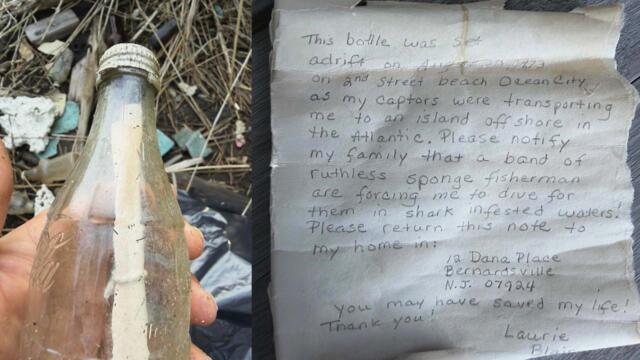 This bottle was set
adrift on Aug
on 2nd Street beach Ocean City
as my captors were transporting
me to an island offshore in
the Atlantic. Please notify
my family that a band of
ruthless sponge fisherman
are forcing me to dive for
them in shark infested waters!
Please return this note to
my home in:
12 Dana Place
Bernardsville
N.J. 07924
you may have saved my life!
Thank you!
Laurie